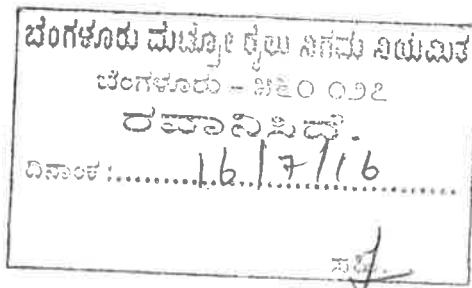 ಬೆಂಗಳೂರು ಮೆಟ್ರೋ ರೈಲು ನಿಗಮ ನಿಯಮಿತ
ಬೆಂಗಳೂರು - ೫೬೦ ೦೨೭
ರವಾನಿಸಿದೆ.
ದಿನಾಂಕ : 16/7/16
ಸಹಿ.